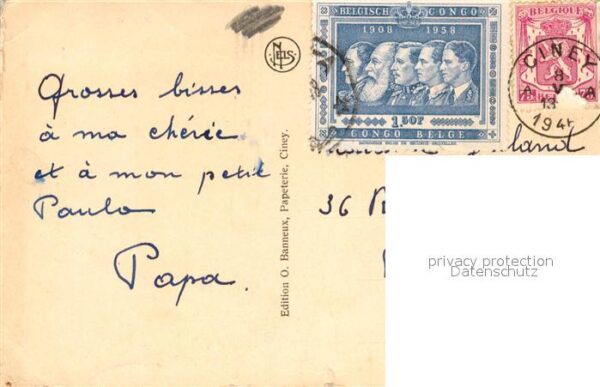 Grosses bisses
à ma chérie
et à mon petit
Paulo
Papa.
NELS
Edition O. Banneux, Papeterie, Ciney.
BELGISCH CONGO
1908 1958
1.50F
CONGO BELGE
BELGIQUE
CINEY
8
A V A
13
194
36
privacy protection
Datenschutz